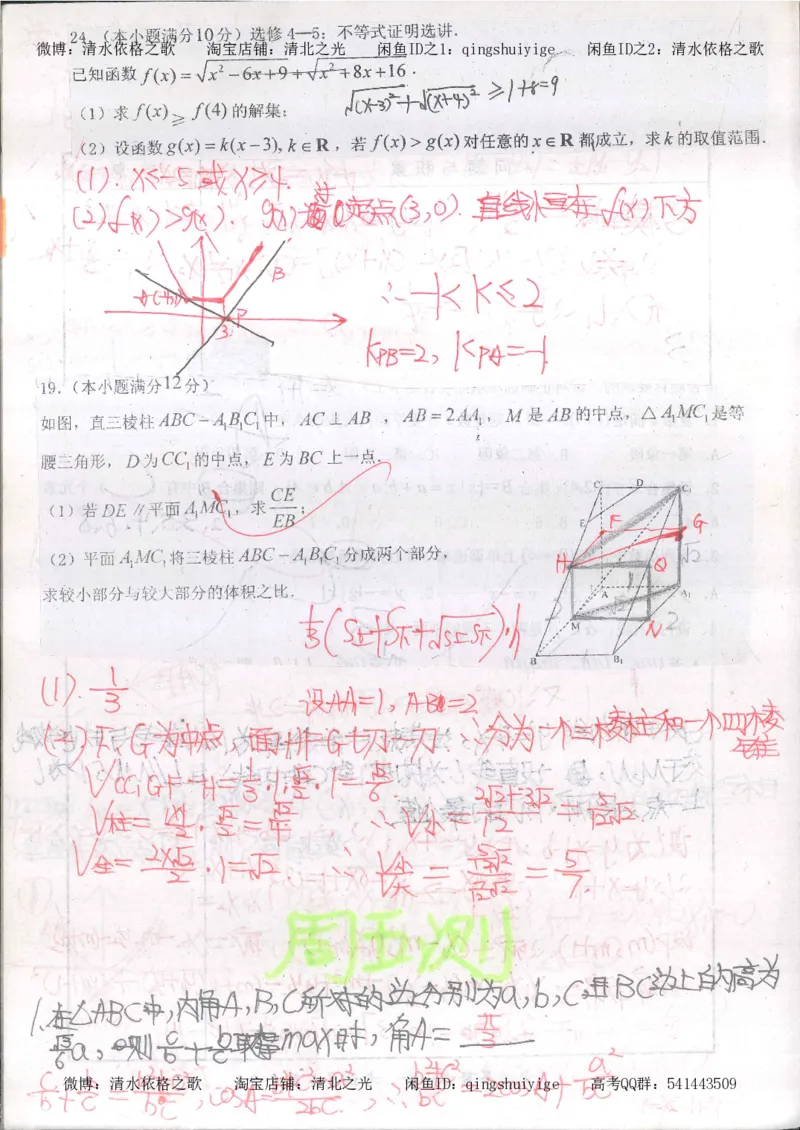 24.（本小题满分10分）选修4—5：不等式证明选讲.
微博：清水依格之歌 淘宝店铺：清北之光 闲鱼ID之1：qingshuiyige 闲鱼ID之2：清水依格之歌
已知函数 f(x)=√x²-6x+9+√x²+8x+16.
√(x-3)²+√(x+4)² ≥1+8=9
(1) 求 f(x)≥f(4) 的解集；
(2) 设函数 g(x)=k(x-3), k∈R，若 f(x)>g(x) 对任意的 x∈R 都成立，求 k 的取值范围.
(2) f(x)>g(x). g(x)过定点(3,0). 直线恒在f(x)下方
B
A(-4,7)
P
3
∴ -1<k≤2
kPB=2, kPA=-1
19.（本小题满分12分）
如图，直三棱柱 ABC-A₁B₁C₁中，AC⊥AB，AB=2AA₁，M 是 AB 的中点，△A₁MC₁是等
腰三角形，D为CC₁的中点，E为BC上一点.
(1) 若DE∥平面A₁MC₁，求 CE/EB；
(2) 平面A₁MC₁将三棱柱ABC-A₁B₁C₁分成两个部分，
求较小部分与较大部分的体积之比.
C D
E F G
H Q
√2
A A₁
M N 2
B B₁
1/3(S上+S下+√S上S下)·h
(1). 1/3
设AA₁=1, AB=2
(2) F、G为中点, 面HFG切一刀 ∴分为一个三棱柱和一个四棱锥
∴V小 = (2√2+3√2)/12 = 5/12√2
V全= 2×√2/2·1=√2
∴ V小/V大 = (5/12√2)/(7/12√2) = 5/7.
周五测
1. 在△ABC中,内角A,B,C所对的边分别为a,b,c,且BC边上的高为
√3/6a, 则c/b+b/c取得max时, 角A= π/3
微博：清水依格之歌 淘宝店铺：清北之光 闲鱼ID：qingshuiyige 高考QQ群：541443509